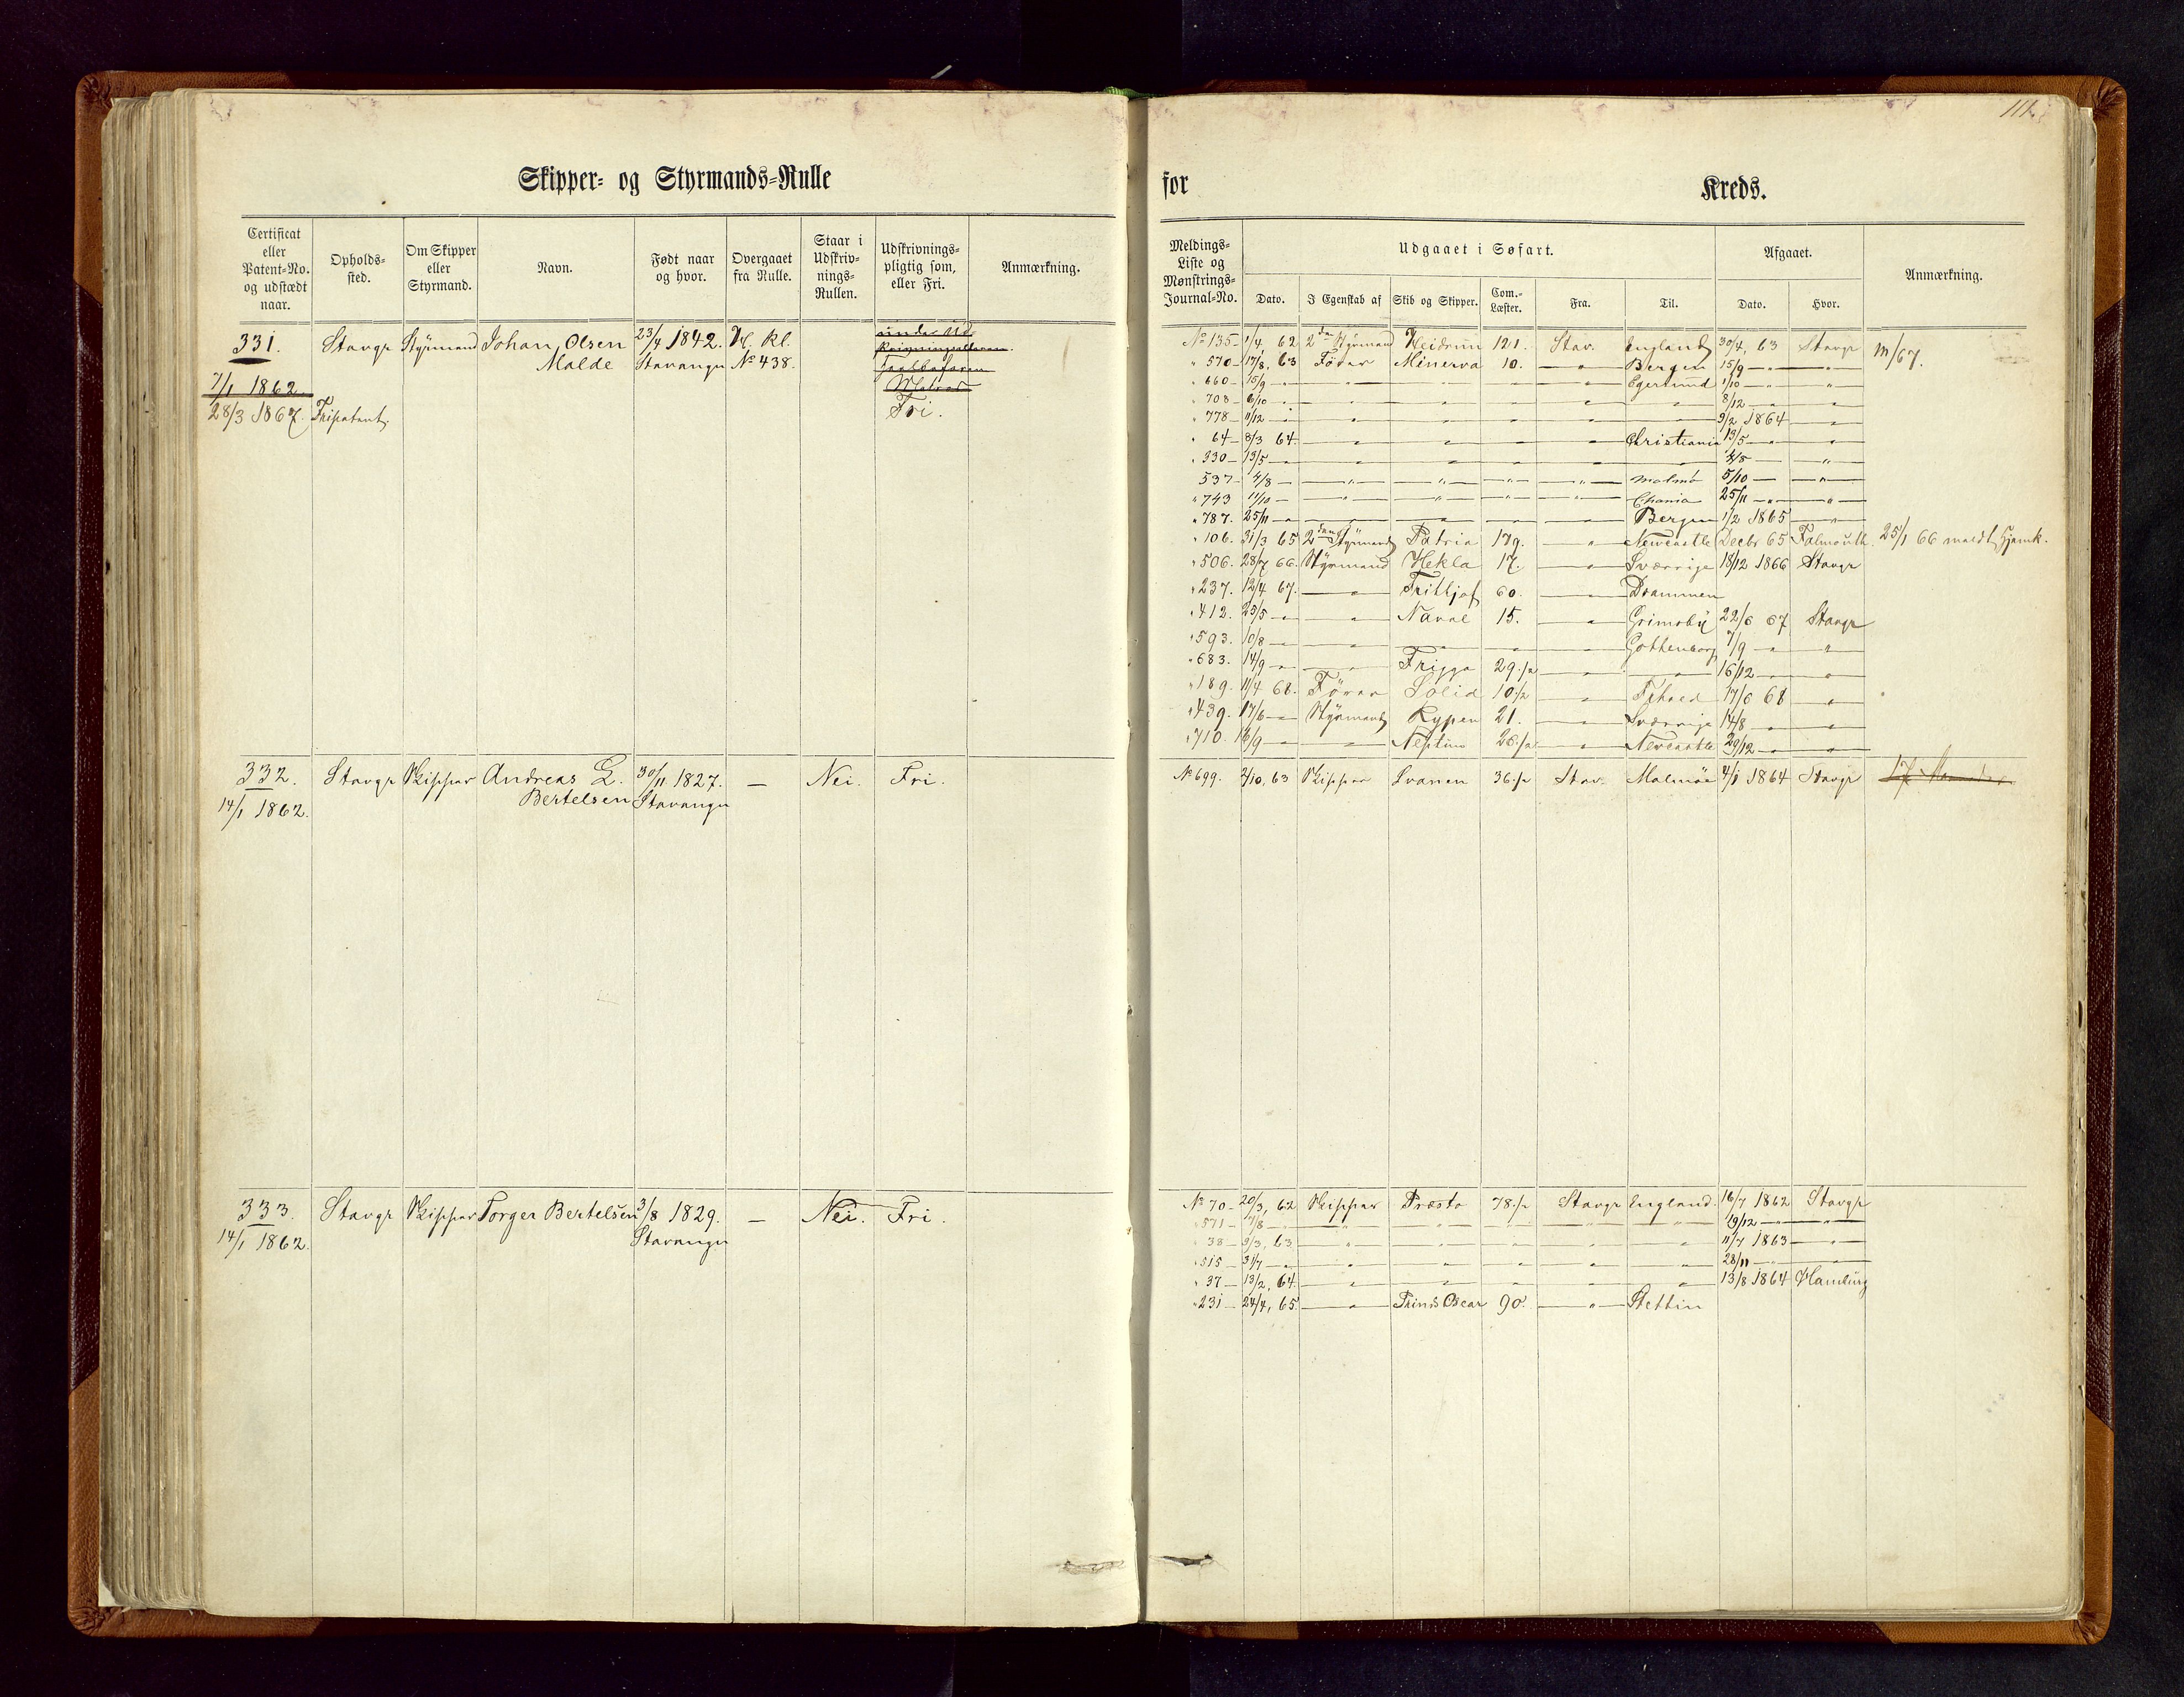 Skipper- og Styrmands-Rulle
Certificat eller Patent-No. og udstædt naar.
Opholds-sted.
Om Skipper eller Styrmand.
Navn.
Født naar og hvor.
Overgaaet fra Rulle.
Staar i Udskriv-nings-Rullen.
Udskrivnings-pligtig som, eller Fri.
Anmærkning.
331. Stavgr Styrmand Johan Olsen 23/4 1842. Hl. Kl.
Malde Stavanger No 438.
7/1 1862
28/3 1867. Fripatent. Fri.
332. Stavgr Skipper Andreas L. 30/11 1827. — Nei. Fri.
Bertelsen Stavanger
14/1 1862.
333. Stavgr Skipper Torger Bertelsen 3/8 1829. — Nei. Fri.
14/1 1862. Stavanger
111.
for Kreds.
Meldings-Liste og Mønstrings-Journal-No.
Udgaaet i Søfart.
Afgaaet.
Anmærkning.
Dato.
I Egenskab af
Skib og Skipper.
Com.-Læster.
Fra.
Til.
Dato.
Hvor.
No 135 1/4 62 2den Styrmand Heidrun 121. Stav. England 30/4, 63 Stavgr m/67.
" 570 17/8, 63 Fører Minerva 10. — " — Bergen 15/9 — " —
" 660 15/9 — " — Egersund 1/10 — " —
" 708 6/10 — " — 8/12 — " —
" 778 11/12 — " — 9/2 1864 — " —
" 64 8/3 64. — " — Christiania 13/5 — " —
" 330 13/5 — " — 4/8 — " —
537 4/8 — " — Malmö 5/10 — " —
" 743 11/10 — " — Chania 25/11 — " —
" 787. 25/11 — " — Bergen 1/2 1865 — " —
" 106. 31/3 65 2den Styrmand Patria 179. — " — Newcastle Decbr 65 Falmouth. 25/1 66 meldt Hjemk.
" 506. 28/7 66. Styrmand Hekla 17. — " — Sverrige 18/12 1866 Stavgr
" 237. 12/4 67. — " — Frithjof 60. — " — Drammen
" 412. 25/5 — " — Naval 15. — " — Grimsby 22/6 67 Stavgr
" 593. 10/8 — " — Gothenborg 7/9 — " —
" 683. 14/9 — " — Frigga 29.½ — " — 16/12 — " —
" 189. 11/4 68. Fører Solid 10.½ — " — 17/6 68 — " —
" 439. 17/6 — " — Styrmand Rypen 21. — " — Sverrige 14/8 — " —
" 710. 16/9 — " — Neptun 28.½ — " — Newcastle 29/12 — " —
No 699. 2/10, 63 Skipper Svanen 36.½ Stav. Malmöe 4/1 1864 Stavgr
No 70 20/3, 62 Skipper Præsto 78.½ Stavgr England. 16/7 1862 Stavgr
" 571 7/8 — " — 19/12 — " —
" 38 9/3, 63 — " — 11/7 1863 — " —
" 515 31/7 — " — 28/11 — " —
" 37 13/2, 64. — " — 13/8 1864 Hamburg
" 231 24/4, 65. — " — Prinds Oscar 90. — " — Stettin